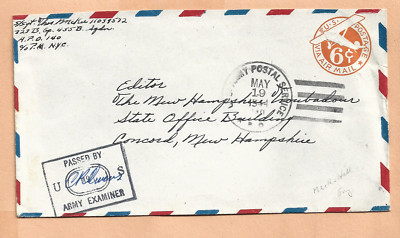 S/Sgt. Thos McKee 11039572
323 B. Gp. 455 B. Sqdn
A.P.O. 140
c/o P.M. NYC.
U.S. POSTAGE
6¢
VIA AIR MAIL
U.S. ARMY POSTAL SERVICE
MAY
19
1944
Editor
The New Hampshire Troubadour
State Office Building
Concord, New Hampshire
PASSED BY
U S
ARMY EXAMINER